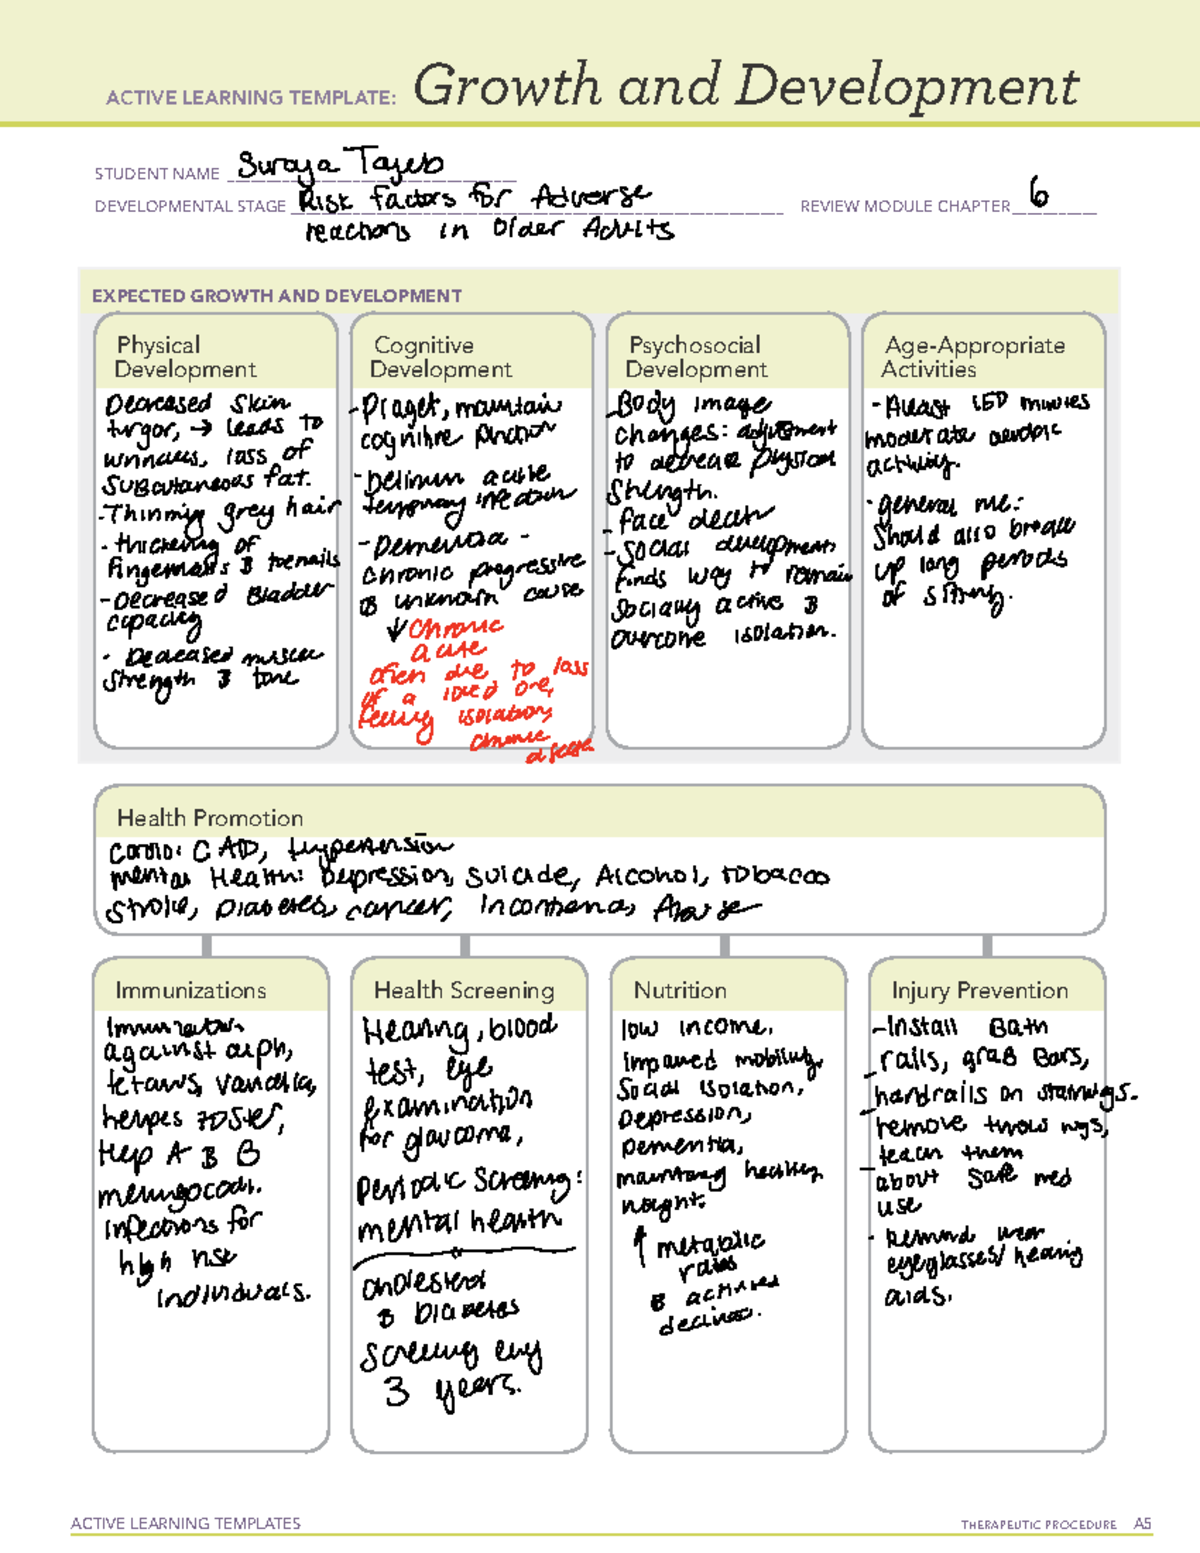 ACTIVE LEARNING TEMPLATE: Growth and Development
STUDENT NAME Suraya Tayeb
DEVELOPMENTAL STAGE Risk factors for Adverse
reactions in Older Adults
REVIEW MODULE CHAPTER 6
EXPECTED GROWTH AND DEVELOPMENT
Physical
Development
Decreased Skin
turgor, → leads to
wrinkles, loss of
subcutaneous fat.
-Thinning grey hair
- thickening of
fingernails & toenails
-Decreased Bladder
capacity
- Decreased muscle
strength & tone
Cognitive
Development
-Piaget, maintain
cognitive function
-Delirium acute
temporary
-Dementia -
chronic progressive
& unknown cause
↓ chronic
acute
often due to loss
of a loved one,
feeling isolation,
chronic
disease
Psychosocial
Development
-Body image
changes: adjustment
to decrease physical
strength.
- face death
-Social development
finds way to remain
socially active &
overcome isolation.
Age-Appropriate
Activities
-Atleast 150 minutes
moderate aerobic
activity.
-general
Should also break
up long periods
of sitting.
Health Promotion
Cardio: CAD, Hypertension
mental Health: Depression, suicide, Alcohol, tobacco
stroke, Diabetes, cancer, Incontinence, Abuse
Immunizations
Immunizations
against diph,
tetanus, varicella,
herpes zoster,
Hep A & B
meningococ.
infections for
high risk
individuals.
Health Screening
Hearing, blood
test, eye
examination
for glaucoma,
periodic screening:
mental health
cholesterol
& Diabetes
screening evry
3 years.
Nutrition
low income,
impaired mobility,
Social isolation,
Depression,
Dementia,
maintaing healthy
weight.
↑ metabolic
rates
& activities
declines.
Injury Prevention
-Install Bath
rails, grab Bars,
-handrails on stairways.
-remove throw rugs,
teach them
-about safe med
use
- Remind wear
eyeglasses/hearing
aids.
ACTIVE LEARNING TEMPLATES
THERAPEUTIC PROCEDURE A5